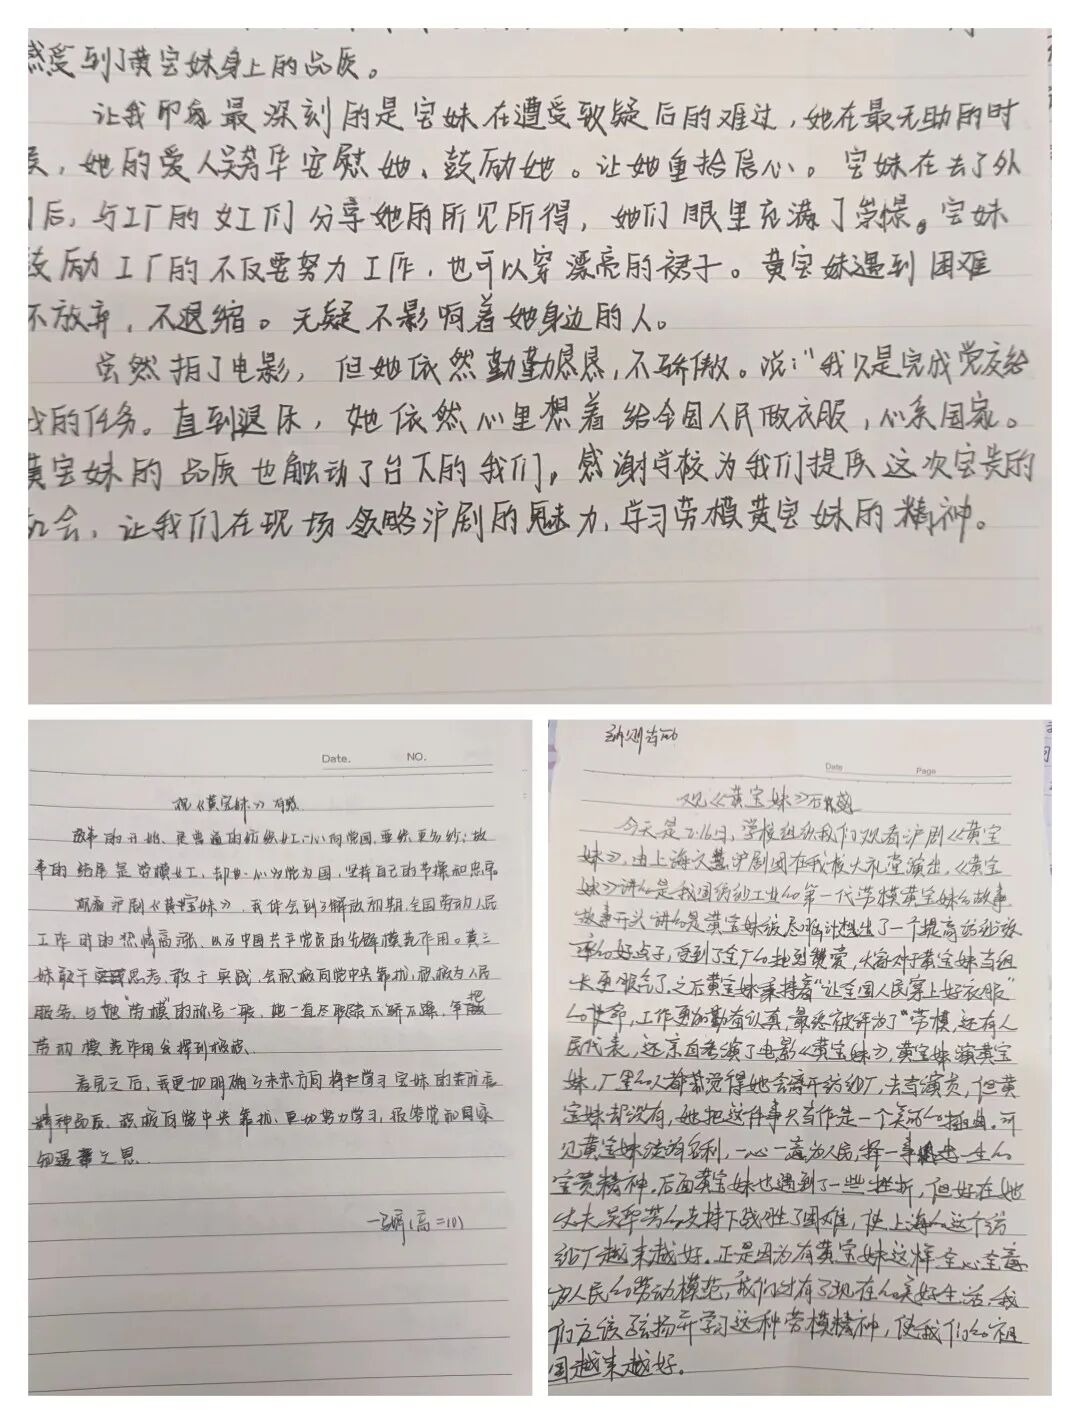 感受到了黄宝妹身上的品质。
让我印象最深刻的是宝妹在遭受致疑后的难过，她在最无助的时
候，她的爱人吴芳华安慰她、鼓励她。让她重拾信心。宝妹在去了外
门后，与工厂的女工们分享她的所见所得，她们眼里充满了荣憬。宝妹
鼓励工厂的不仅要努力工作，也可以穿漂亮的裙子。黄宝妹遇到困难
不放弃，不退缩。无疑不影响着她身边的人。
虽然拍了电影，但她依然勤勤恳恳，不骄傲。说："我只是完成党交给
我的任务。直到退休，她依然心里想着给全国人民做衣服，心系国家。
黄宝妹的品质也触动了台下的我们，感谢学校为我们提供这次宝贵的
机会，让我们在现场领略沪剧的魅力，学习劳模黄宝妹的精神。
Date. NO.
观《黄宝妹》有感
故事的开始，是普通的纺织女工，心向党国，要织更多纱；故
事的结尾是劳模女工，却一心为党为国，坚持自己的节操和忠厚
观看沪剧《黄宝妹》，我体会到了解放初期，全国劳动人民
工作时的热情高涨，以及中国共产党员的先锋模范作用。黄宝
妹敢于思考，敢于实践，会积极向党中央靠拢，积极为人民
服务，与她"劳模"的称号一般，她一直尽职尽不骄不躁，争把
劳动模范作用发挥到极致。
看完之后，我更加明确了未来方向，学习宝妹的
精神品质，积极向党中央靠拢，更加努力学习，报答党和国家
之恩。
Date Page
观《黄宝妹》有感
今天是2.16日，学校组织我们观看沪剧《黄宝
妹》，由上海文慧沪剧团在我校大礼堂演出，《黄宝
妹》讲的是我国纺织工业的第一代劳模黄宝妹的故事，
故事开头讲的是黄宝妹绞尽脑汁想出了一个提高纺纱效
率的好点子，受到了全厂的赞赏，大家对于黄宝妹当组
长更服气了，之后黄宝妹秉持着"让全国人民穿上好衣服"
的使命，工作更加勤奋认真，最终被评为了"劳模，还有人
民代表，还亲自参演了电影《黄宝妹》，黄宝妹演黄宝
妹，厂里的人都觉得她会离开纺纱厂，去当演员，但黄
宝妹却没有，她把这件事只当作是一个美好的插曲。可
见黄宝妹淡泊名利，一心一意为人民，择一事一生的
宝贵精神。后面黄宝妹也遇到了一些挫折，但好在她
丈夫吴华芳的支持下战胜了困难，使上海的这个纺
纱厂越来越好。正是因为有黄宝妹这样全心全意
为人民的劳动模范，我们才有了现在的美好生活，我
们应该弘扬并学习这种劳模精神，使我们的祖
国越来越好。